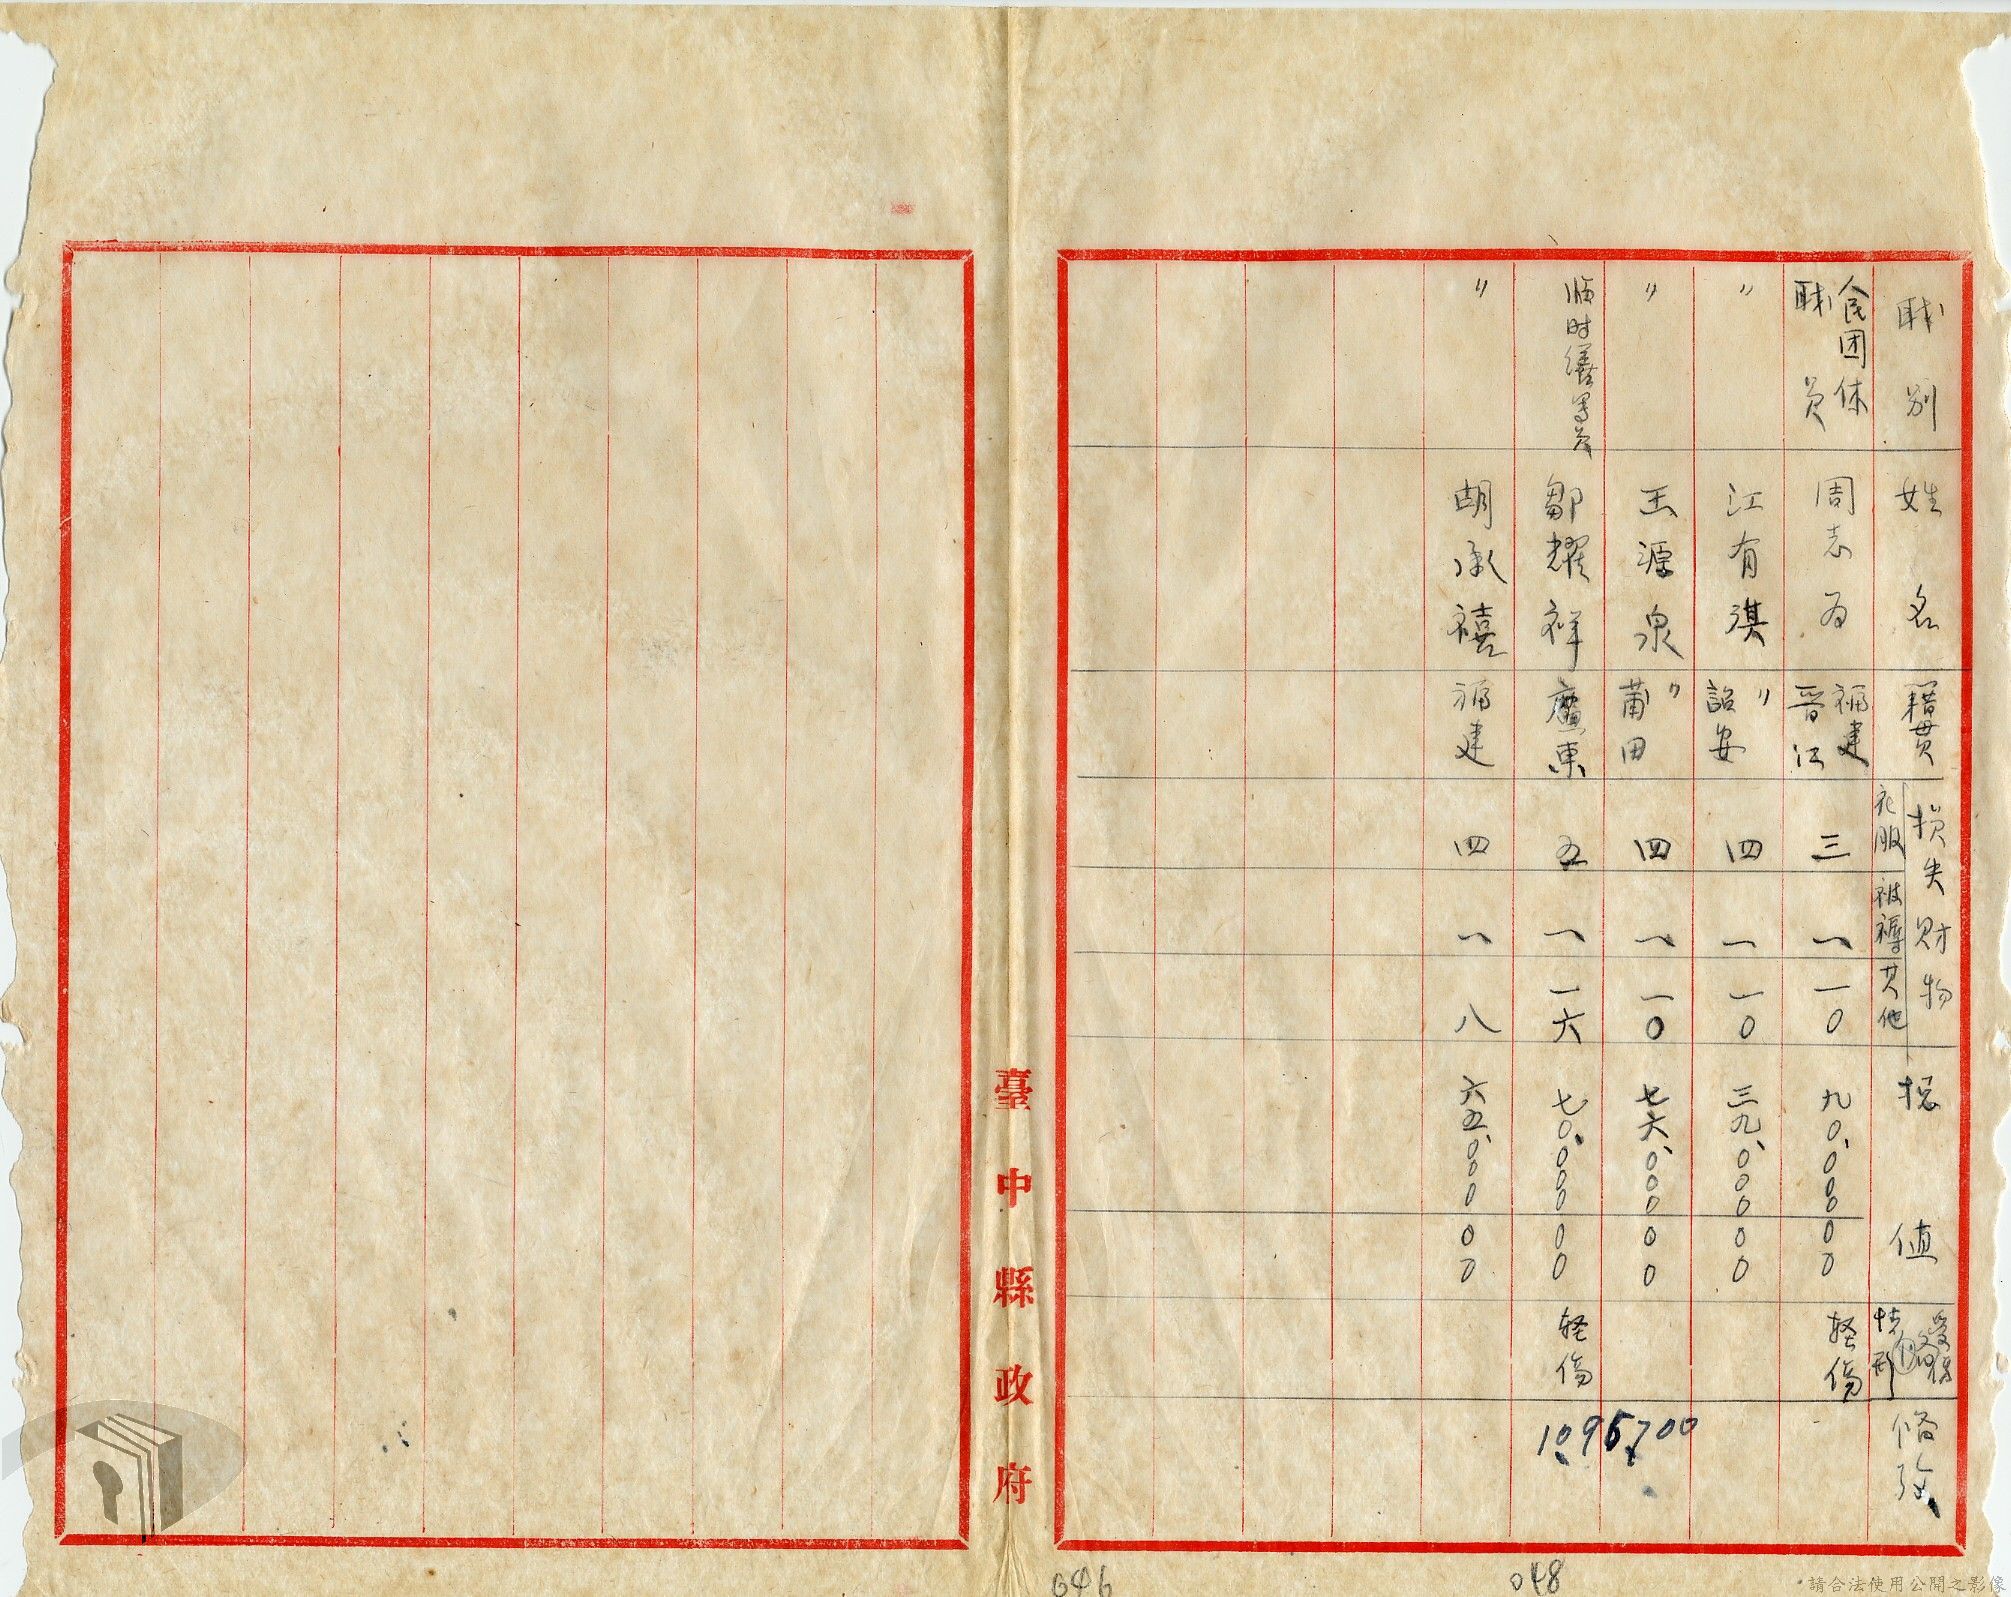 職別
姓名
籍貫
損失財物
衣服
被褥
其他
損
值
受傷
情形
備考
人民团体
職員
周志为
福建
晋江
三
一
一〇
九〇、〇〇〇〇〇
轻傷
〃
江有淇
〃
詔安
四
一
一〇
三九、〇〇〇〇〇
〃
王源泉
〃
莆田
四
一
一〇
七六、〇〇〇〇〇
临时繕寫員
鄒耀祥
廣東
五
一
一六
七〇、〇〇〇〇〇
轻傷
〃
胡承禧
福建
四
一
八
六五、〇〇〇〇〇
1095700
臺中縣政府
046
048
請合法使用公開之影像